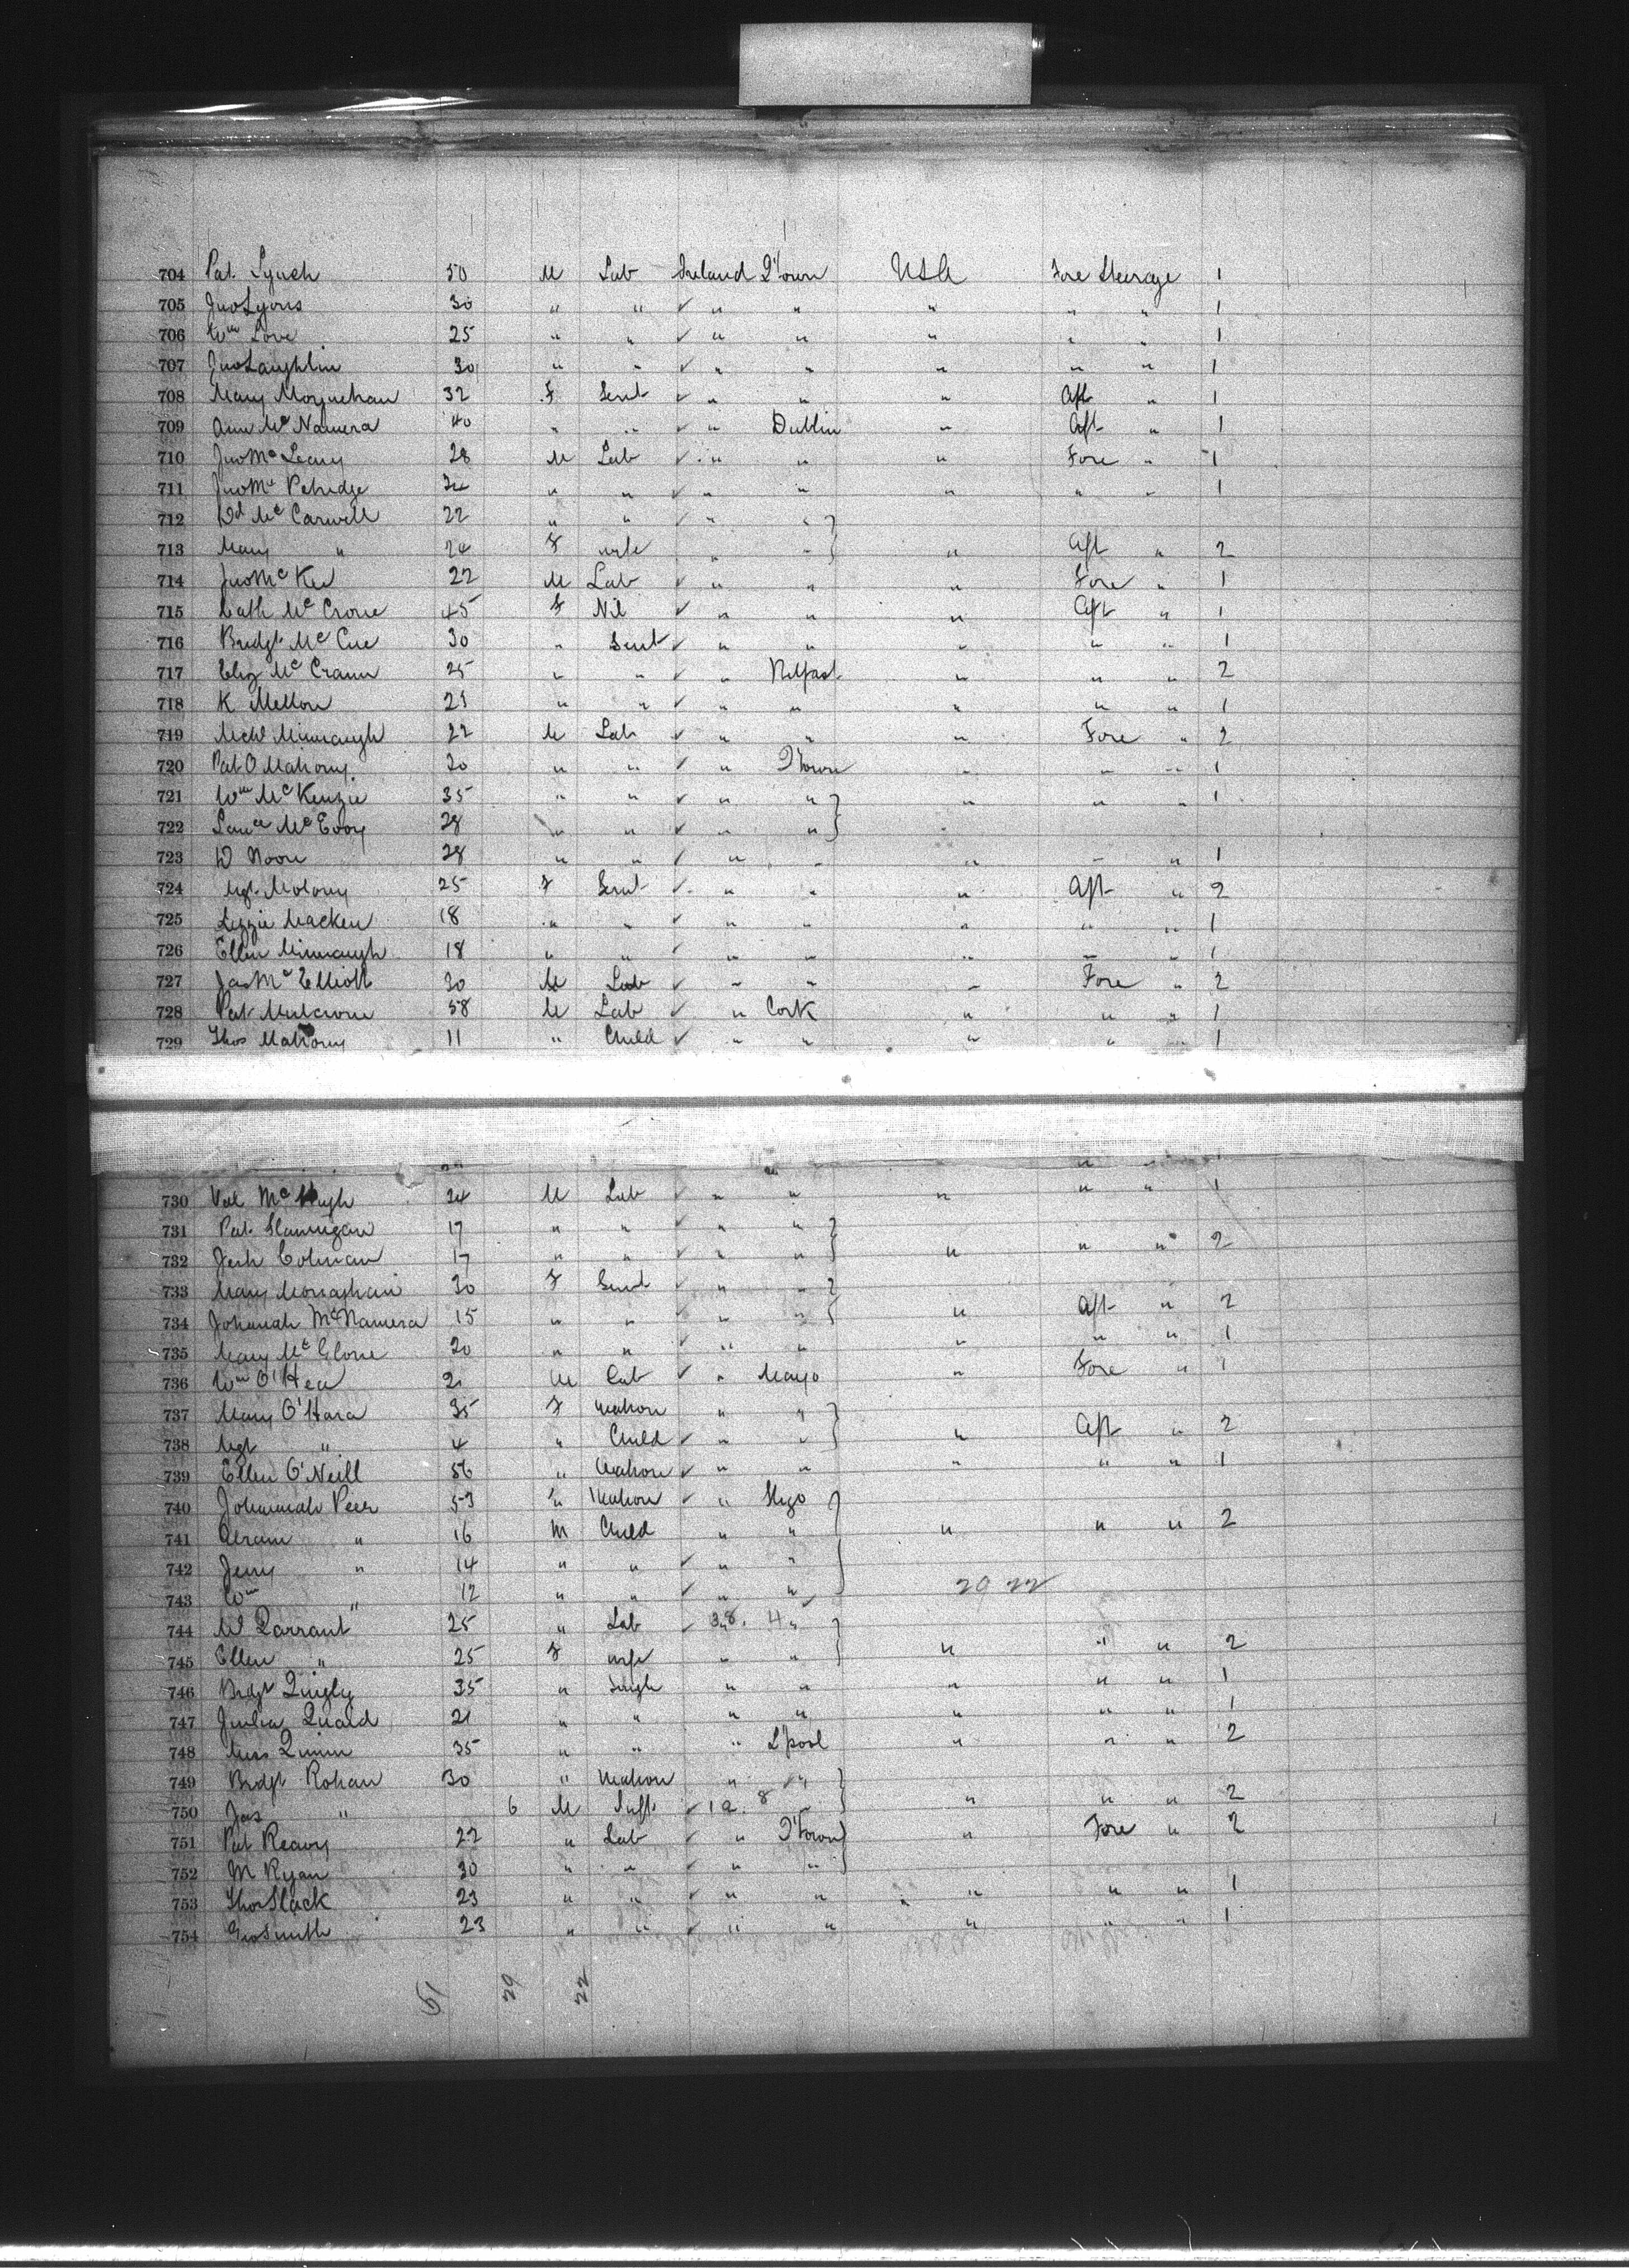 704 Pat. Lynch 50 M Lab Ireland Q'Town USA Fore Steerage 1
705 Jno Lyons 30 " " ✓ " " " " " 1
706 Wm Love 25 " " ✓ " " " " " 1
707 Jno Laughlin 30 " " ✓ " " " " " 1
708 Mary Moynehan 32 F Servt ✓ " " " Aft " 1
709 Ann McNamera 40 " " ✓ " Dublin " Aft " 1
710 Jno McLeary 28 M Lab ✓ " " " Fore " 1
711 Jno Mc Petridge " " ✓ " " " " " 1
712 Wd McCarwell 22 " " ✓ " " }
713 Mary " 24 F wife " " } " Aft " 2
714 Jno McKee 22 M Lab ✓ " " " Fore " 1
715 Cath McCrone 45 F Nil ✓ " " " Aft " 1
716 Bridgt McCue 30 " Servt ✓ " " " " " 1
717 Eliz McCrann 25 " " ✓ " Belfast " " " 2
718 K Mellon 21 " " ✓ " " " " " 1
719 Michl Minnaugh 22 M Lab ✓ " " " Fore " 2
720 Pat O Mahony 20 " " ✓ " Q'Town " " " 1
721 Wm McKenzie 35 " " ✓ " " } " " " 1
722 Lauce McEvoy 28 " " ✓ " " }
723 W Moore 28 " " ✓ " " " " " 1
724 Mgt Molony 25 F Servt ✓ " " " Aft " 2
725 Lizzie Macken 18 " " ✓ " " " " " 1
726 Ellen Minnaugh 18 " " ✓ " " " " " 1
727 Jas McElliott 20 M Lab ✓ " " " Fore " 2
728 Pat Mulcrone 58 M Lab ✓ " Cork " " " 1
729 Thos Mahony 11 " Child ✓ " " " " " 1
730 Val McHugh 24 M Lab ✓ " " " " " 1
731 Pat. Flannigan 17 " " ✓ " " }
732 Colman 17 " " ✓ " " } " " " 2
733 Mary Monaghan 30 F Servt ✓ " " }
734 Johanah McNamera 15 " " ✓ " " } " Aft " 2
735 Mary McGlone 20 " " ✓ " " " " " 1
736 Wm O'Hea 21 M Lab ✓ " Mayo " Fore " 1
737 Mary O'Hara 35 F Matron " " }
738 Mgt " 4 " Child ✓ " " } " Aft " 2
739 Ellen O'Neill 56 " Matron ✓ " " " " " 1
740 Johannah Peer 53 " Matron ✓ " Sligo }
741 Abram " 16 M Child " " " " " 2
742 Jerry " 14 " " ✓ " "
743 Wm " 12 " " ✓ " " } 29 22
744 M Qarrant 25 " Lab ✓ 38. 4 " }
745 Ellen " 25 F wife " " } " " " 2
746 Brdgt Quigly 35 " Single " " " " " 1
747 Julia Quaid 21 " " " " " " " 1
748 Miss Quinn 35 " " " L'pool " " " 2
749 Brdgt Rohan 30 " Matron " " }
750 Jas " 6 M Inft. ✓ 12. 8 } " " " 2
751 Pat Reavy 22 " Lab ✓ " Q'Town } " Fore " 2
752 M Ryan 30 " " ✓ " " }
753 Thos Slack 23 " " ✓ " " " " " 1
754 Geo Smith 23 " " ✓ " " " " " 1
51 29 22